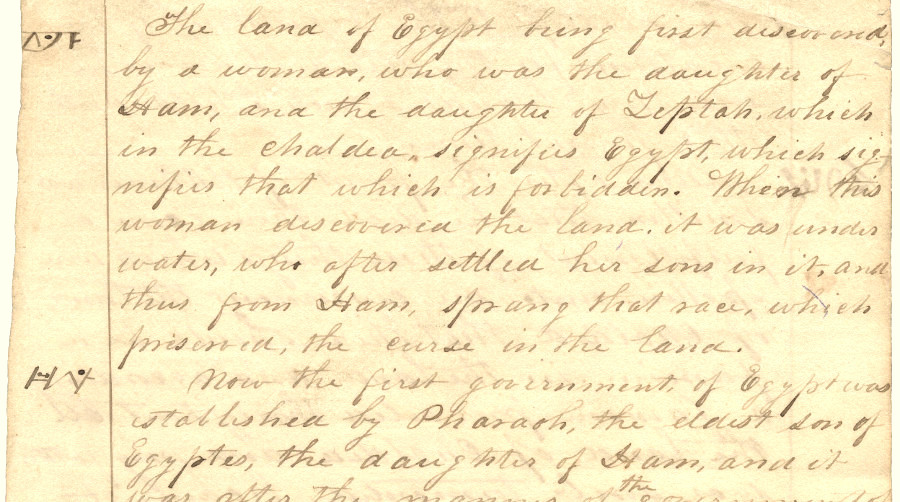 The land of Egypt being first discovered,
by a woman, who was the daughter of
Ham, and the daughter of Zeptah, which
in the chaldea, signifies Egypt, which sig
nifies that which is forbidden. When this
woman discovered the land, it was under
water, who after settled her sons in it, and
thus from Ham, sprang that race, which
preserved, the curse in the land.
Now the first government, of Egypt was
established by Pharaoh, the eldest son of
Egyptes, the daughter of Ham, and it
was after the manner of the government of